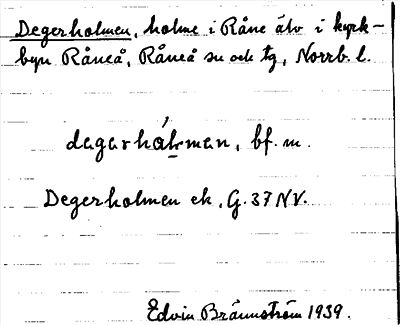 Degerholmen, holme i Råne älv i kyrk-
byn Råneå, Råneå sn och tg, Norrb. l.
degerhólmen, bf. m.
Degerholmen ek. G. 37 NV.
Edvin Brännström 1939.